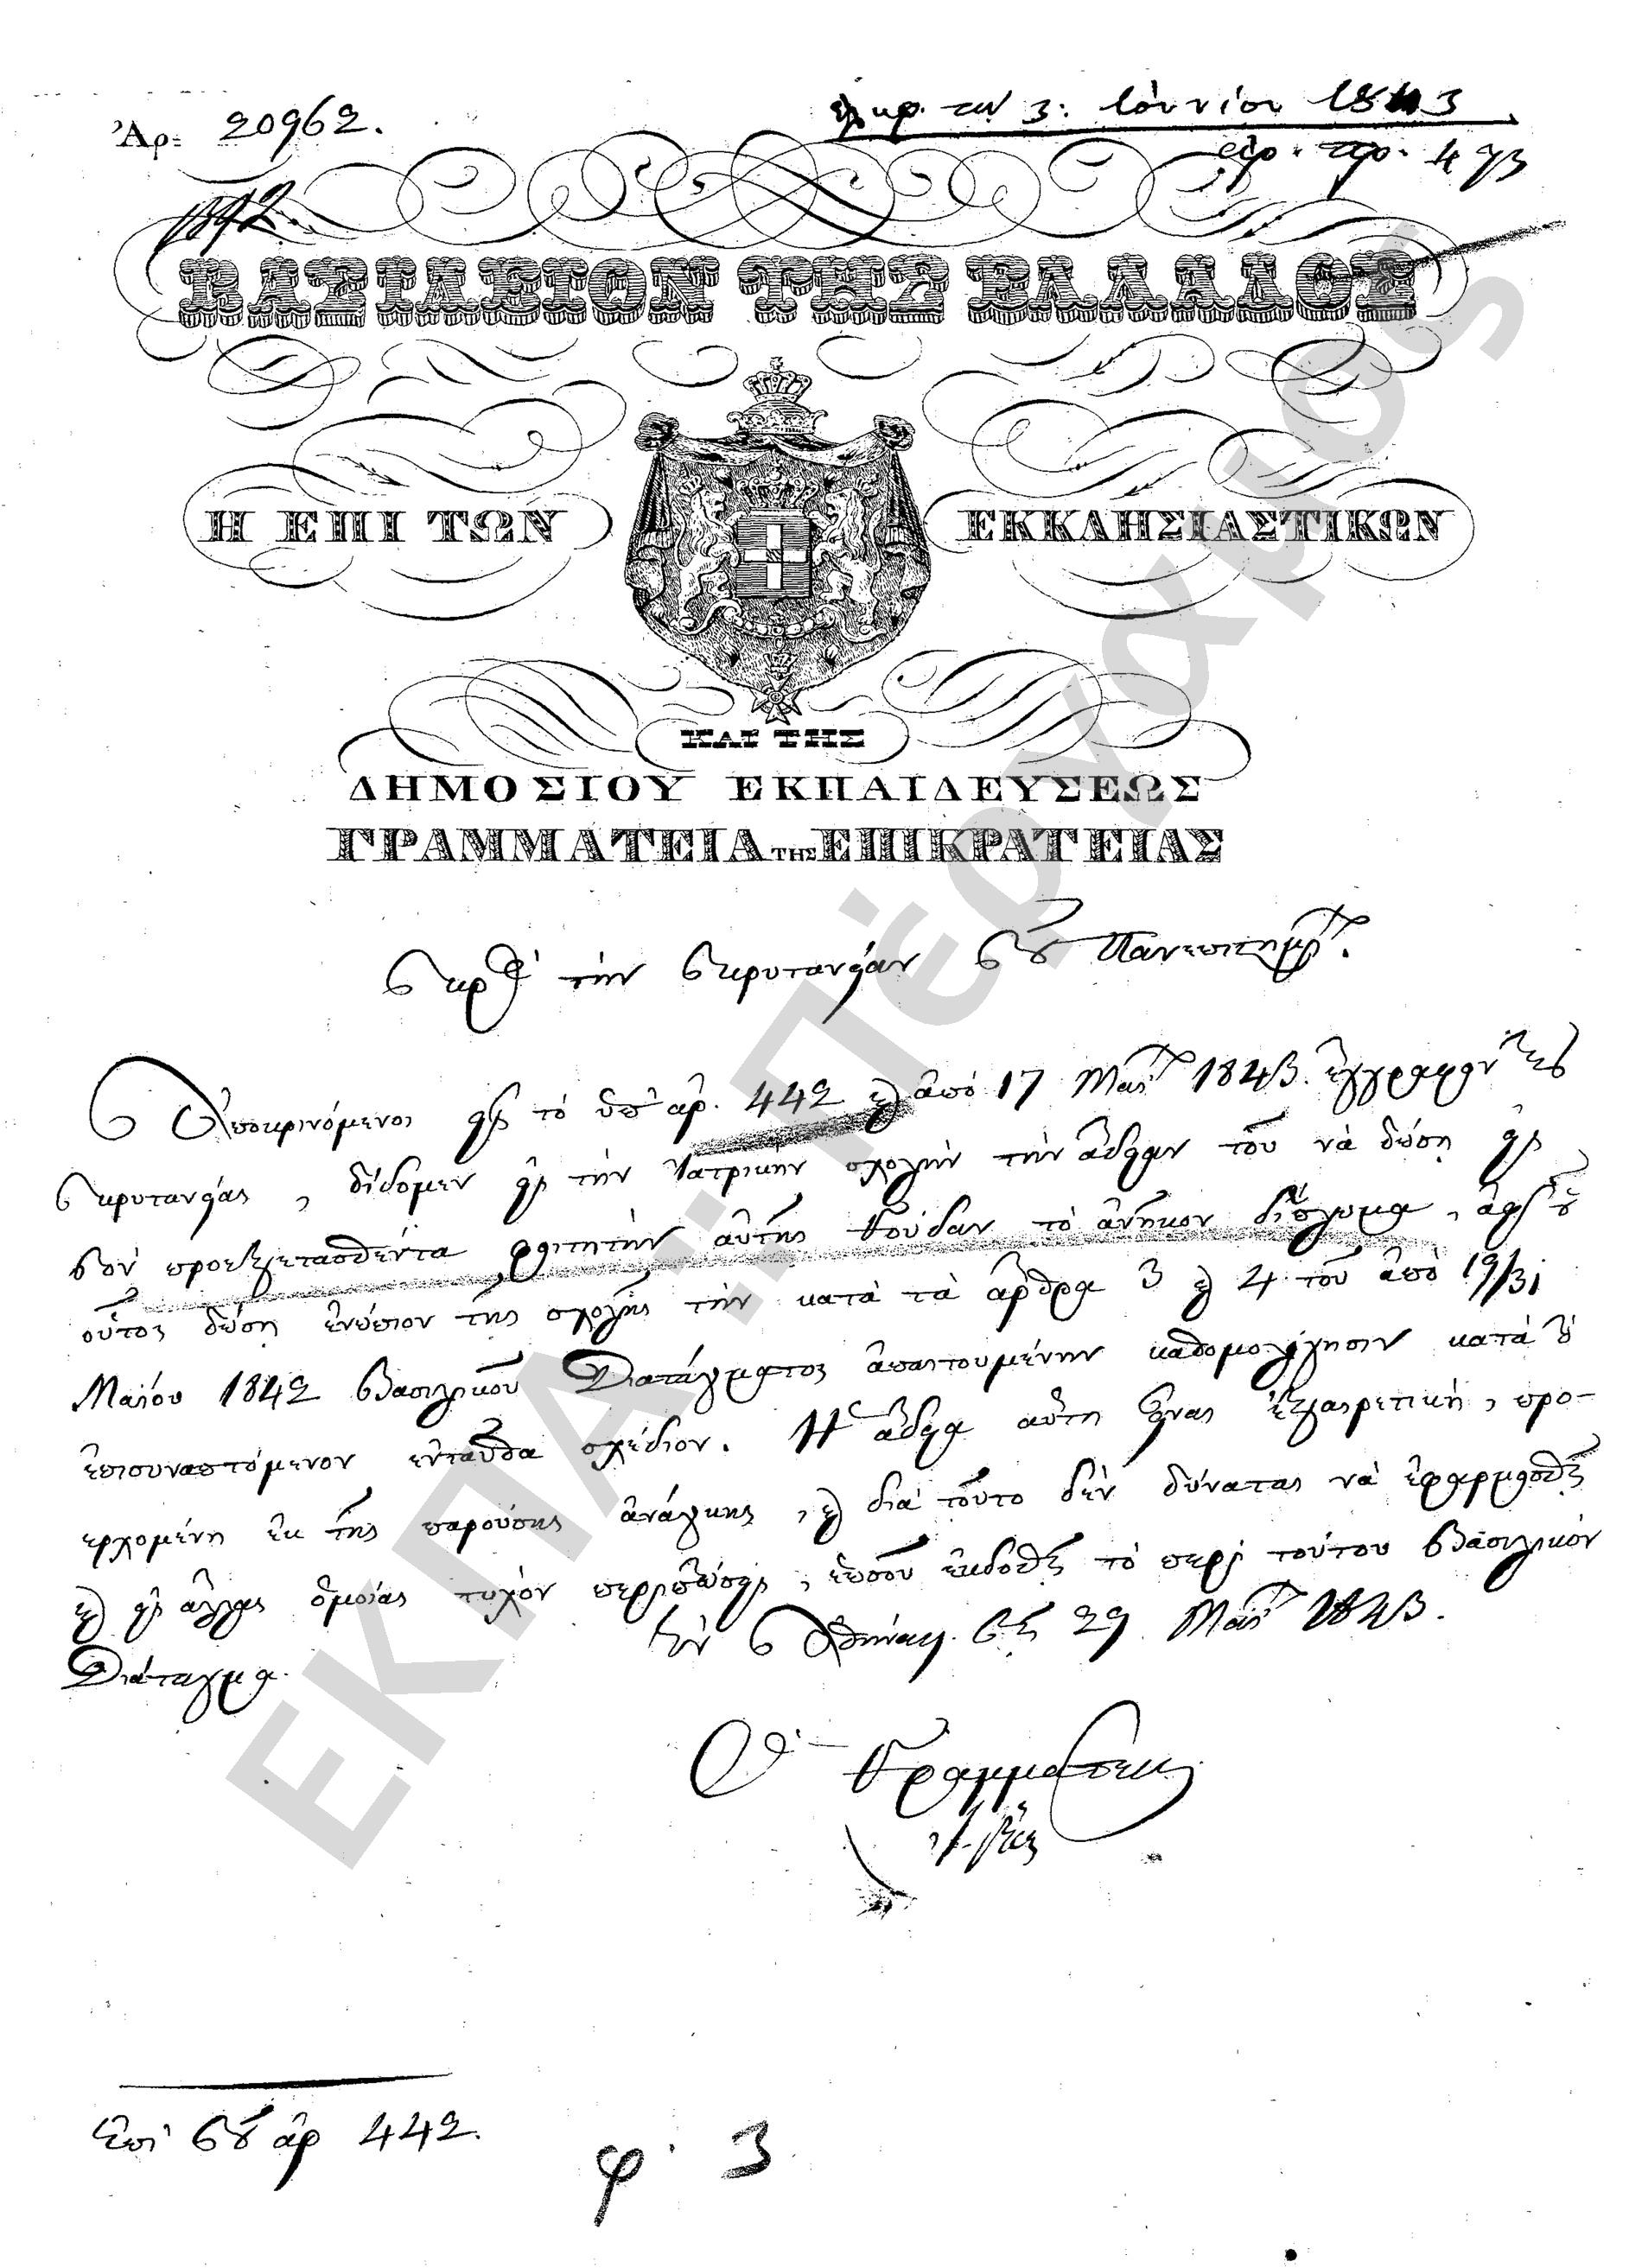 Ἀρ= 20962. ἐλήφ. τὴν 3: Ἰουνίου 1843
ἀρ. πρ. 493
1892.
ΒΑΣΙΛΕΙΟΝ ΤΗΣ ΕΛΛΑΔΟΣ
Η ΕΠΙ ΤΩΝ ΕΚΚΛΗΣΙΑΣΤΙΚΩΝ
ΚΑΙ ΤΗΣ
ΔΗΜΟΣΙΟΥ ΕΚΠΑΙΔΕΥΣΕΩΣ
ΓΡΑΜΜΑΤΕΙΑ ΤΗΣ ΕΠΙΚΡΑΤΕΙΑΣ
Πρὸς τὴν Πρυτανείαν τοῦ Πανεπιστημίου.
Ἀποκρινόμενοι εἰς τὸ ὑπ' ἀρ. 442 καὶ ἀπὸ 17 Μαΐου 1843. ἔγγραφον τῆς
Πρυτανείας, δίδομεν εἰς τὴν Ἰατρικὴν σχολὴν τὴν ἄδειαν τοῦ νὰ δώσῃ εἰς
τὸν προεξετασθέντα φοιτητὴν αὐτῆς Γούδαν τὸ ἀνῆκον δίπλωμα, ἀφοῦ
οὗτος δώσῃ ἐνώπιον τῆς σχολῆς τὴν κατὰ τὰ ἄρθρα 3 καὶ 4 τοῦ ἀπὸ 19/31
Μαΐου 1842 Βασιλικοῦ Διατάγματος ἀπαιτουμένην καθομολόγησιν κατὰ τὸ
ἐπισυναπτόμενον ἐνταῦθα σχέδιον. Ἡ ἄδεια αὕτη εἶναι ἐξαιρετικὴ, προ-
ερχομένη ἐκ τῆς παρούσης ἀνάγκης, καὶ διὰ τοῦτο δὲν δύναται νὰ ἐφαρμοσθῇ
καὶ εἰς ἄλλας ὁμοίας τυχὸν περιπτώσεις, ἑωσοῦ ἐκδοθῇ τὸ περὶ τούτου Βασιλικὸν
Διάταγμα. Ἐν Ἀθήναις τῇ 29 Μαΐου 1843.
Ὁ Γραμματεὺς
Ἐπὶ τοῦ ἀρ 442.
φ. 3
ΕΚΠΑ:Πέργαμος